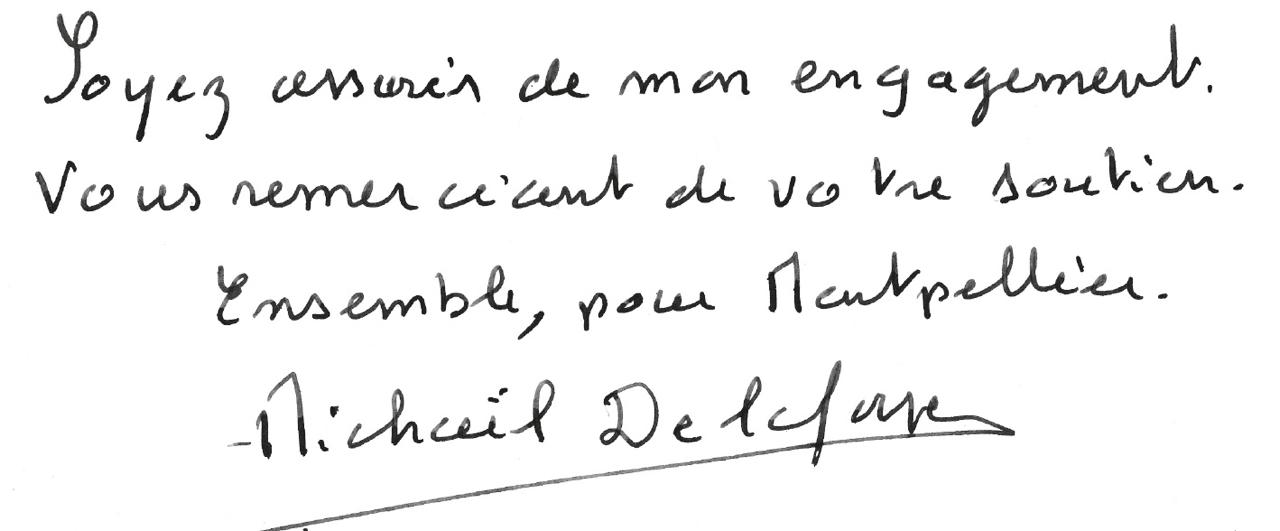 Soyez assurés de mon engagement.
Vous remerciant de votre soutien.
Ensemble, pour Montpellier.
Michaël Delafosse